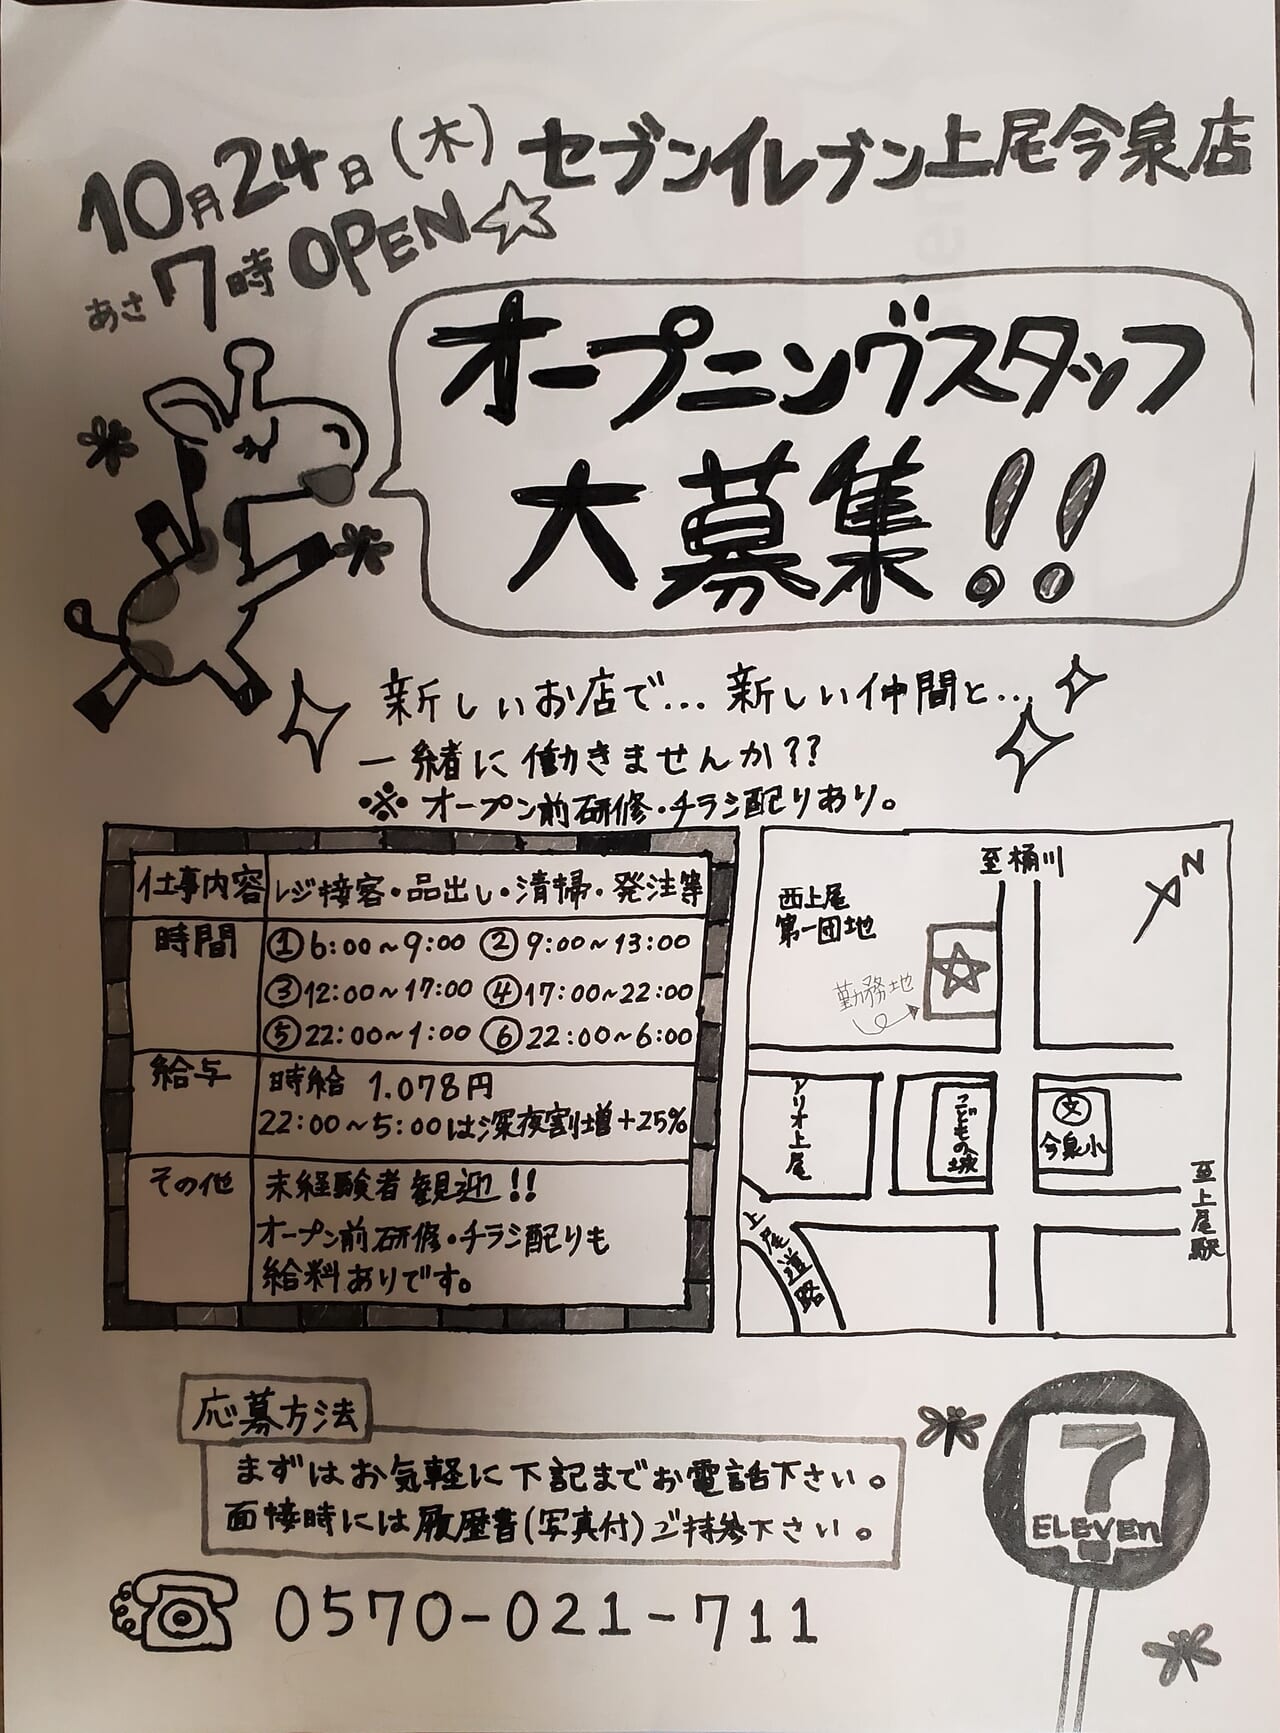 10月24日(木)
あさ7時OPEN☆
セブンイレブン上尾今泉店
オープニングスタッフ
大募集!!
新しいお店で…新しい仲間と…
一緒に働きませんか??
※オープン前研修・チラシ配りあり。
仕事内容 レジ接客・品出し・清掃・発注等
時間 ①6:00~9:00 ②9:00~13:00
③12:00~17:00 ④17:00~22:00
⑤22:00~1:00 ⑥22:00~6:00
給与 時給 1.078円
22:00~5:00は深夜割増+25%
その他 未経験者歓迎!!
オープン前研修・チラシ配りも
給料ありです。
至桶川
N
西上尾
第一団地
勤務地
アリオ上尾
こどもの城
文
今泉小
至上尾駅
上尾道路
応募方法
まずはお気軽に下記までお電話下さい。
面接時には履歴書(写真付)ご持参下さい。
0570-021-711
7
ELEVEn